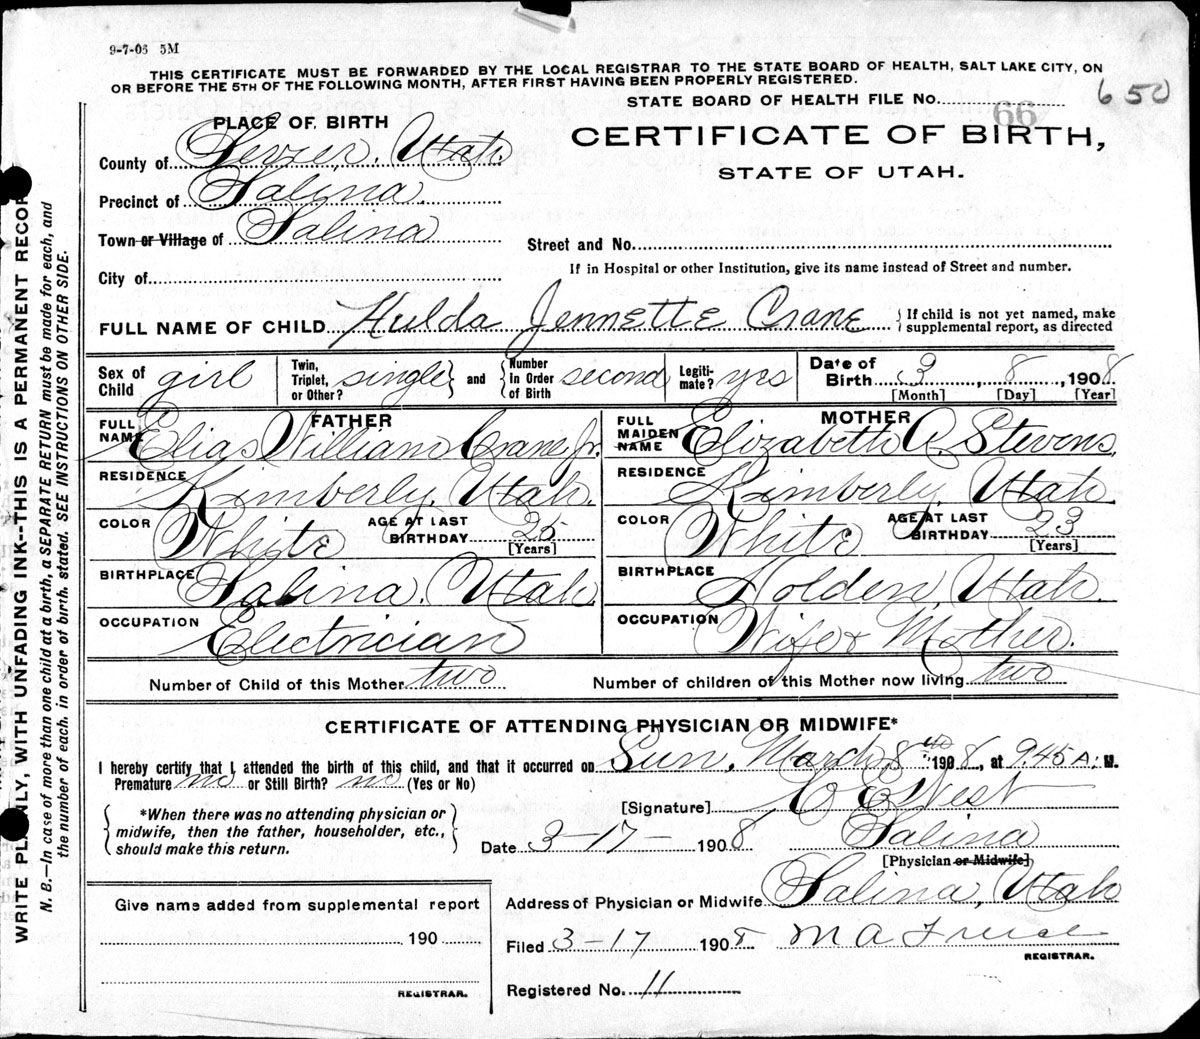 9-7-06 5M
THIS CERTIFICATE MUST BE FORWARDED BY THE LOCAL REGISTRAR TO THE STATE BOARD OF HEALTH, SALT LAKE CITY, ON
OR BEFORE THE 5TH OF THE FOLLOWING MONTH, AFTER FIRST HAVING BEEN PROPERLY REGISTERED.
STATE BOARD OF HEALTH FILE No. 66 650
PLACE OF BIRTH
CERTIFICATE OF BIRTH,
STATE OF UTAH.
County of Sevier, Utah.
Precinct of Salina.
Town or Village of Salina
Street and No.
If in Hospital or other Institution, give its name instead of Street and number.
City of
FULL NAME OF CHILD Hulda Jennette Crane { If child is not yet named, make supplemental report, as directed
Sex of Child girl Twin, Triplet, or Other? single } and { Number In Order of Birth second Legitimate? yes Date of Birth 3, 8, 1908
[Month] [Day] [Year]
FATHER
FULL NAME Elias William Crane Jr.
RESIDENCE Kimberly, Utah.
COLOR White AGE AT LAST BIRTHDAY 25 [Years]
BIRTHPLACE Salina, Utah
OCCUPATION Electrician
MOTHER
FULL MAIDEN NAME Elizabeth A. Stevens,
RESIDENCE Kimberly, Utah.
COLOR White AGE AT LAST BIRTHDAY 23 [Years]
BIRTHPLACE Holden, Utah.
OCCUPATION Wife & Mother.
Number of Child of this Mother two
Number of children of this Mother now living two
CERTIFICATE OF ATTENDING PHYSICIAN OR MIDWIFE*
I hereby certify that I attended the birth of this child, and that it occurred on Sun, March 8th 1908, at 9.45 A. M.
Premature no or Still Birth? no (Yes or No)
*When there was no attending physician or
midwife, then the father, householder, etc.,
should make this return.
[Signature] West
Date 3-17- 1908 Salina
[Physician or Midwife]
Address of Physician or Midwife Salina, Utah
Filed 3-17 1908 M A
REGISTRAR.
Registered No. 11
Give name added from supplemental report
190
REGISTRAR.
WRITE PLAINLY, WITH UNFADING INK--THIS IS A PERMANENT RECOR
N. B.—In case of more than one child at a birth, a SEPARATE RETURN must be made for each, and
the number of each, in order of birth, stated. SEE INSTRUCTIONS ON OTHER SIDE.